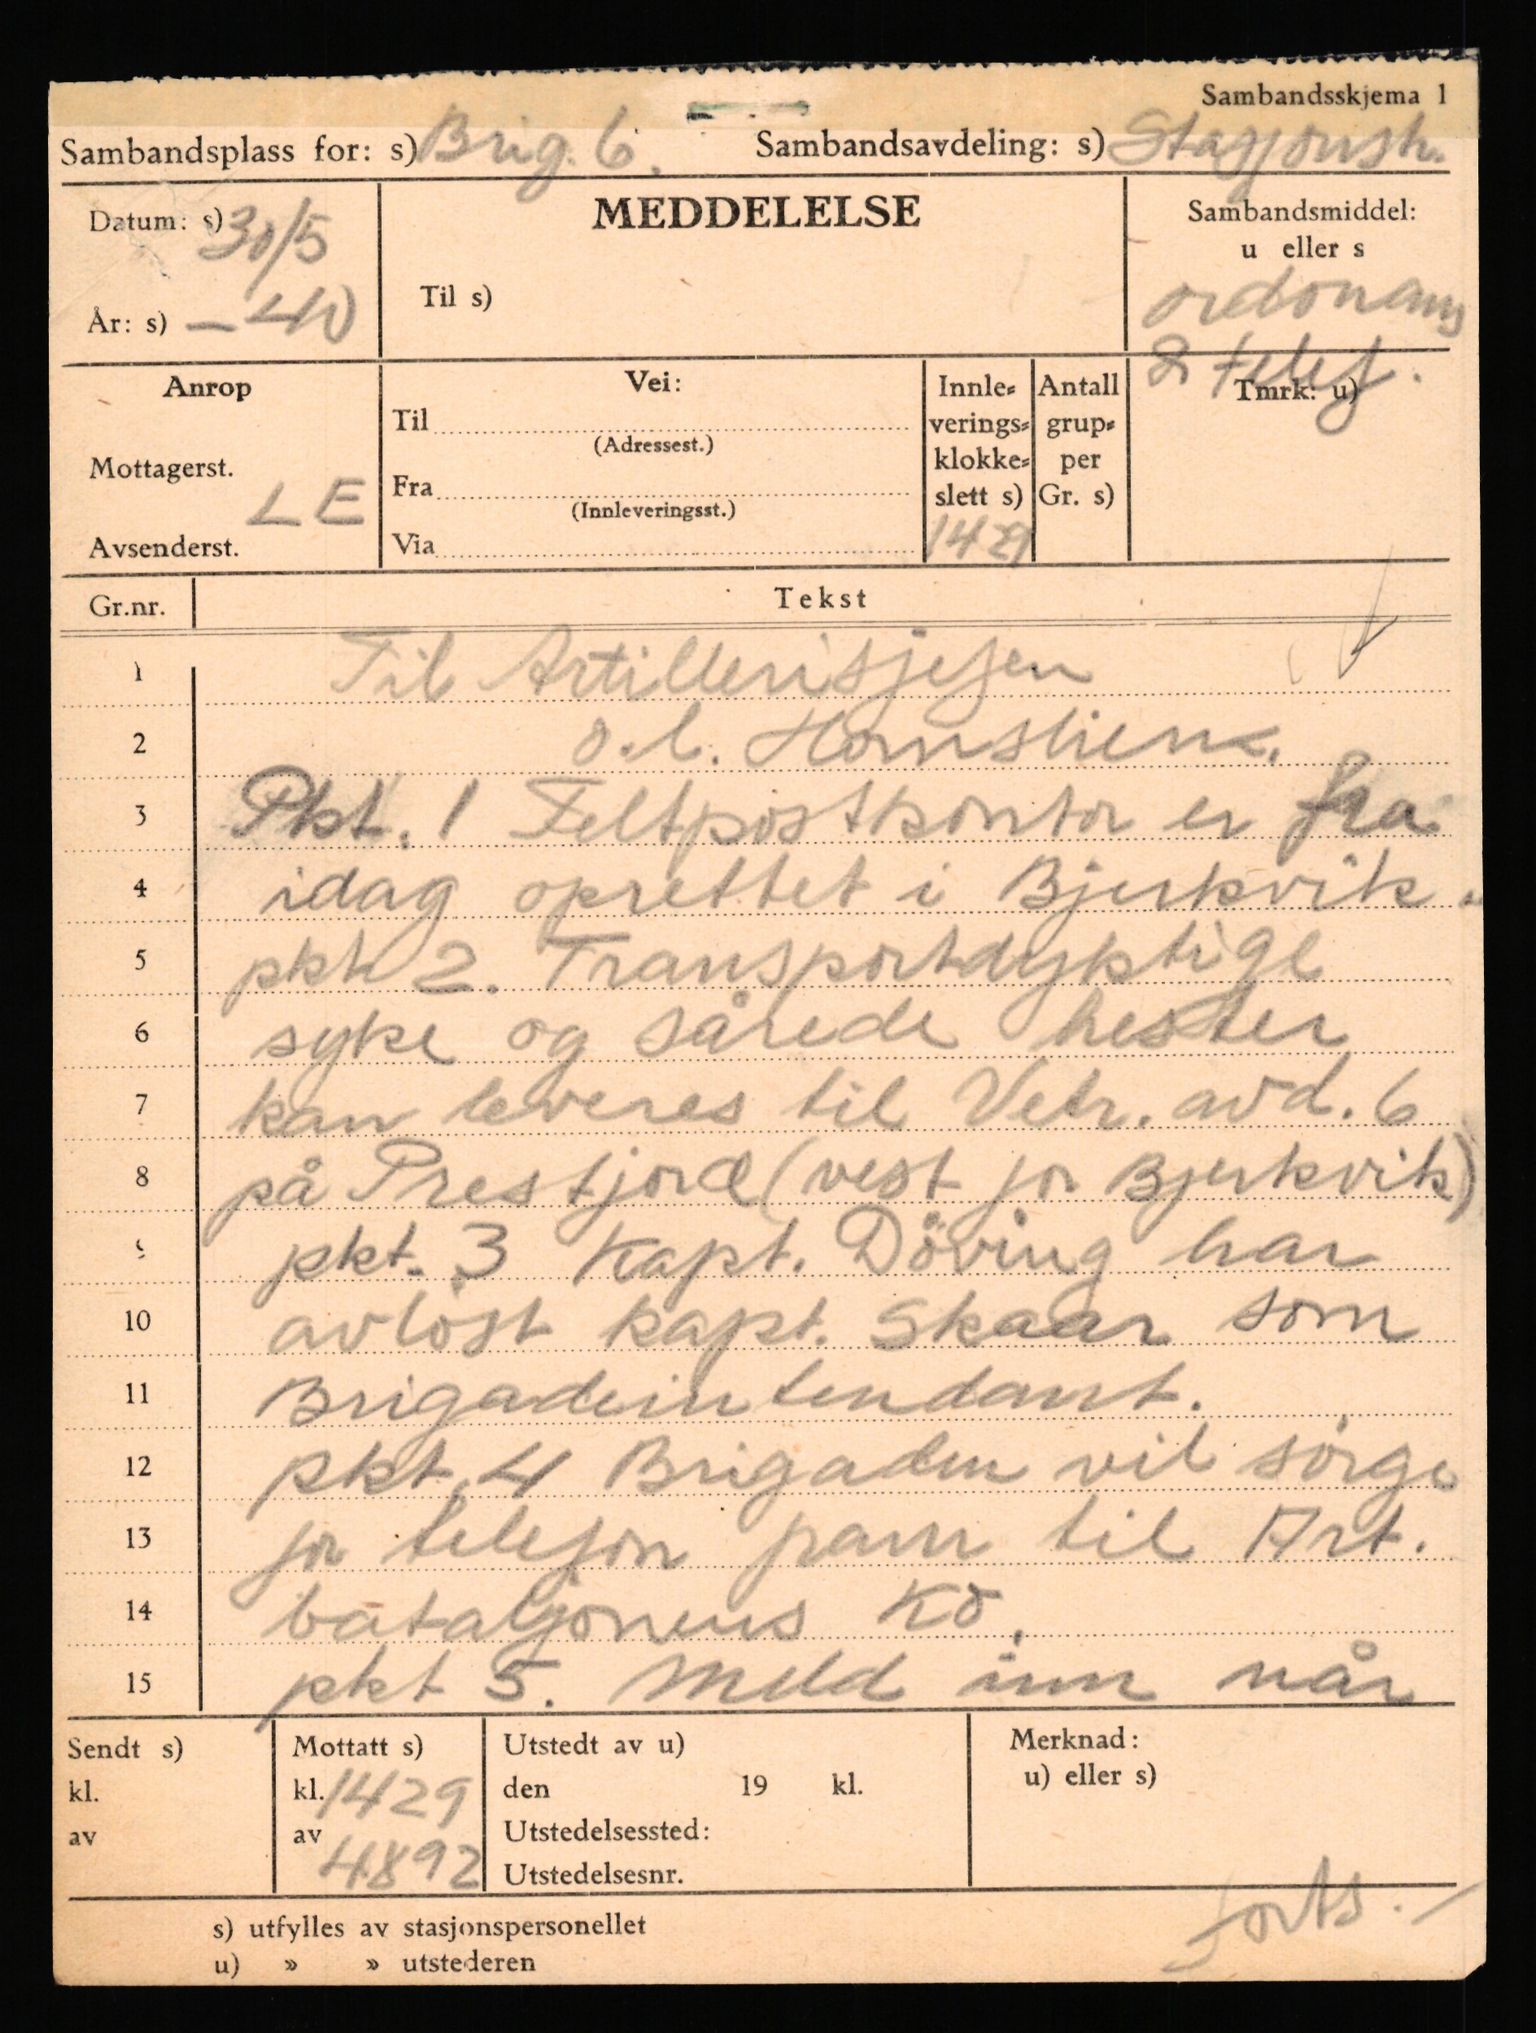 Sambandsskjema 1
Sambandsplass for: s) Brig. 6. Sambandsavdeling: s) Stasjonsh.
Datum: s) 30/5
År: s) – 40
MEDDELELSE
Til s)
Sambandsmiddel:
u eller s
ordonans
& telef.
Anrop
Mottagerst.
LE
Avsenderst.
Vei:
Til
(Adressest.)
Fra
(Innleveringsst.)
Via
Innle-
verings-
klokke-
slett s)
1429
Antall
grup-
per
Gr. s)
Tmrk: u)
Gr.nr. Tekst
1 Til Artillerisjefen
2 o.l. Hornslien.
3 Pkt. 1 Feltpostkontor er fra
4 idag oprettet i Bjerkvik.
5 pkt 2. Transportdyktige
6 syke og sårede hester
7 kan leveres til Vetr. avd. 6
8 på Prestjord (vest for Bjerkvik)
9 pkt. 3 Kapt. Döving har
10 avlöst kapt. Skaar som
11 Brigadeintendant.
12 pkt. 4 Brigaden vil sörge
13 for telefon fram til Art.
14 bataljonens KO.
15 pkt 5. Meld inn når
Sendt s)
kl.
av
Mottatt s)
kl. 1429
av
4892
Utstedt av u)
den 19 kl.
Utstedelsessted:
Utstedelsesnr.
Merknad:
u) eller s)
forts. –
s) utfylles av stasjonspersonellet
u) » » utstederen